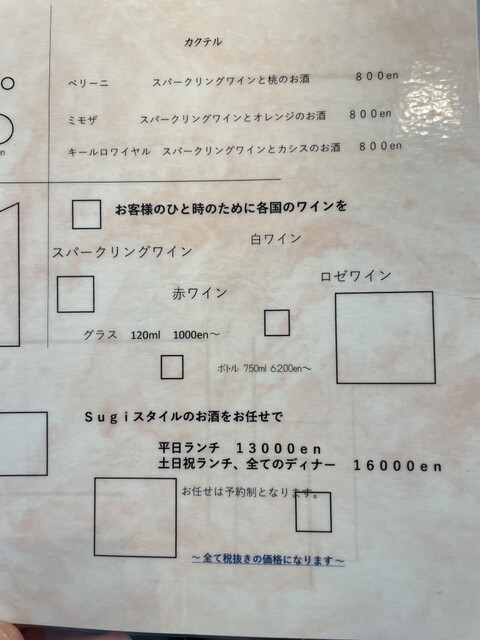 カクテル
ベリーニ スパークリングワインと桃のお酒 ８００en
ミモザ スパークリングワインとオレンジのお酒 ８００en
キールロワイヤル スパークリングワインとカシスのお酒 ８００en
お客様のひと時のために各国のワインを
白ワイン
スパークリングワイン
ロゼワイン
赤ワイン
グラス 120ml 1000en～
ボトル 750ml 6200en～
Ｓｕｇｉスタイルのお酒をお任せで
平日ランチ １３０００ｅｎ
土日祝ランチ、全てのディナー １６０００ｅｎ
お任せは予約制となります。
～全て税抜きの価格になります～